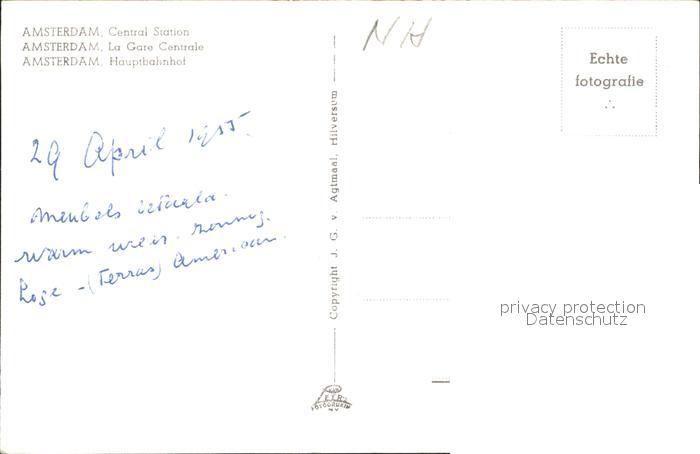 AMSTERDAM, Central Station
AMSTERDAM, La Gare Centrale
AMSTERDAM, Hauptbahnhof
NH
Echte
fotografie
29 April 1955.
Meubels betaald.
warm weer. zonnig.
(Terras) American.
Copyright J. G. v. Agtmaal, Hilversum
privacy protection
Datenschutz
FOTODRUK
N.V.